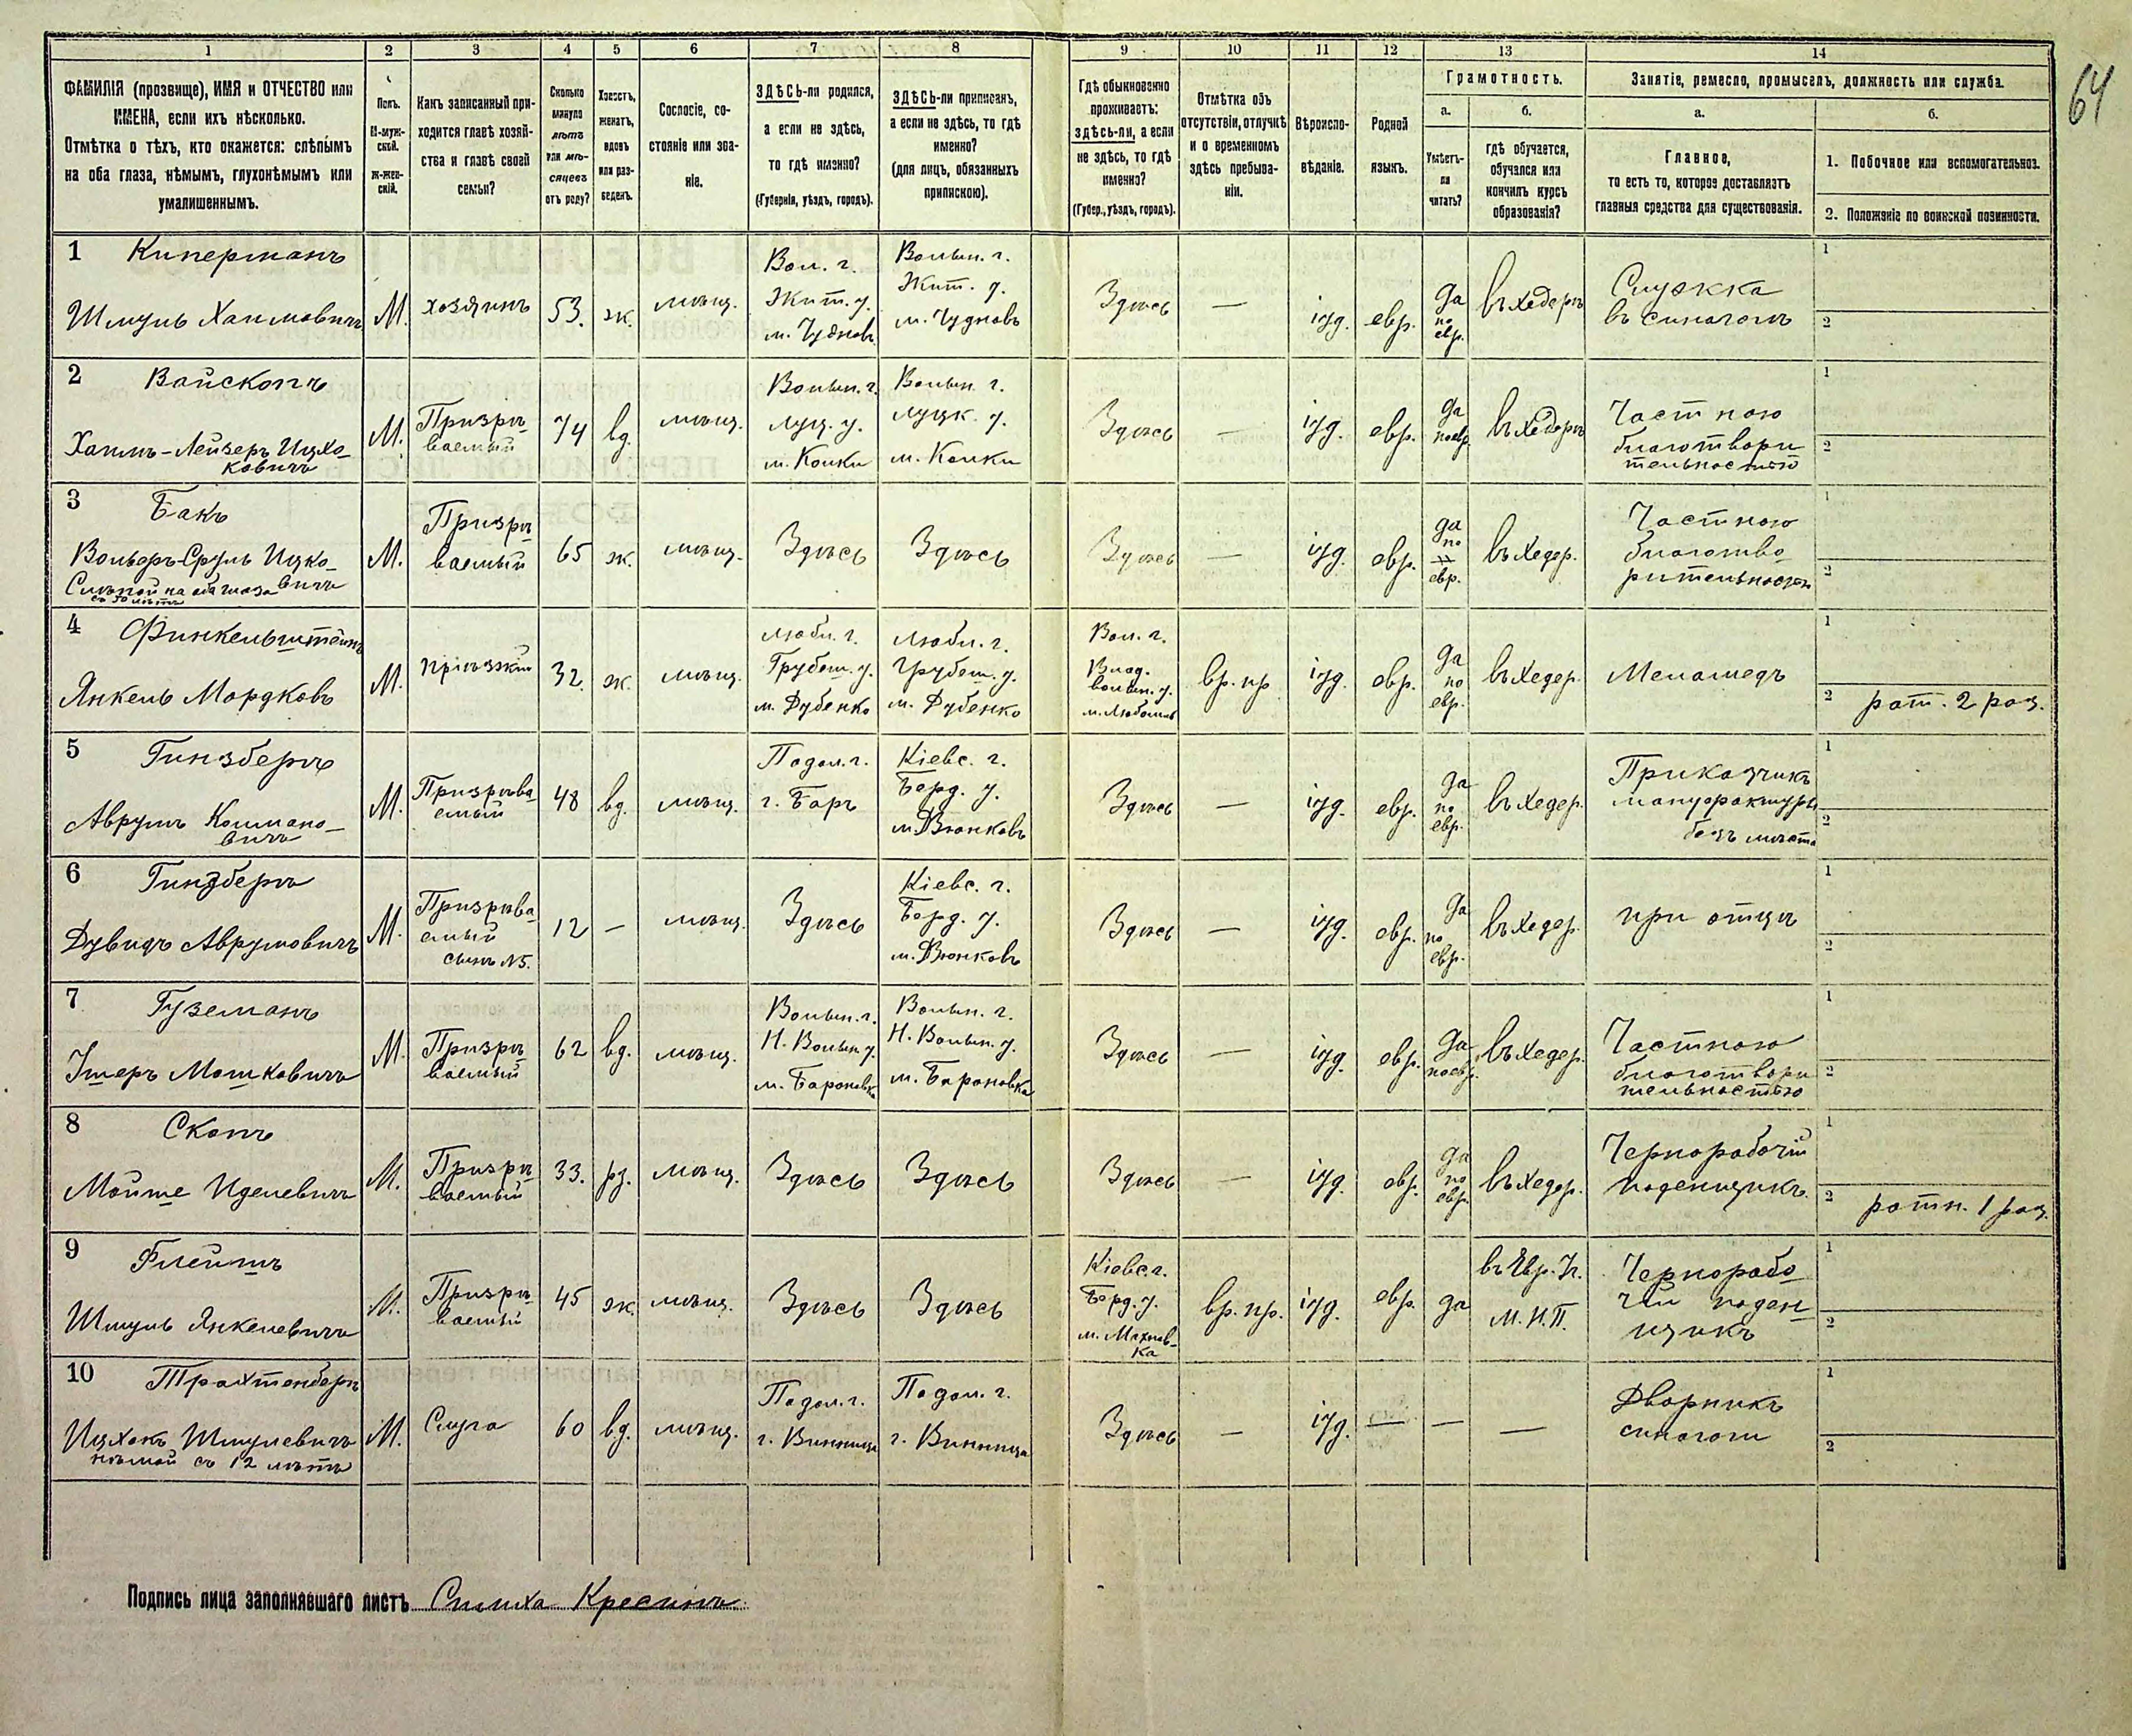 64
1 2 3 4 5 6 7 8 9 10 11 12 13 14
ФАМИЛІЯ (прозвище), ИМЯ и ОТЧЕСТВО или
ИМЕНА, если ихъ нѣсколько.
Отмѣтка о тѣхъ, кто окажется: слѣпымъ
на оба глаза, нѣмымъ, глухонѣмымъ или
умалишеннымъ.
Полъ.
М-муж-
ской.
Ж-жен-
скій.
Какъ записанный при-
ходится главѣ хозяй-
ства и главѣ своей
семьи?
Сколько
минуло
лѣтъ
или мѣ-
сяцевъ
отъ роду?
Холостъ,
женатъ,
вдовъ
или раз-
веденъ.
Сословіе, со-
стояніе или зва-
ніе.
ЗДѢСЬ-ли родился,
а если не здѣсь,
то гдѣ именно?
(Губернія, уѣздъ, городъ).
ЗДѢСЬ-ли приписанъ,
а если не здѣсь, то гдѣ
именно?
(для лицъ, обязанныхъ
припискою).
Гдѣ обыкновенно
проживаетъ:
здѣсь-ли, а если
не здѣсь, то гдѣ
именно?
(Губер., уѣздъ, городъ).
Отмѣтка объ
отсутствіи, отлучкѣ
и о временномъ
здѣсь пребыва-
ніи.
Вѣроиспо-
вѣданіе.
Родной
языкъ.
Грамотность.
а.
Умѣетъ-
ли
читать?
б.
гдѣ обучается,
обучался или
кончилъ курсъ
образованія?
Занятіе, ремесло, промыселъ, должность или служба.
а.
Главное,
то есть то, которое доставляетъ
главныя средства для существованія.
б.
1. Побочное или вспомогательное.
2. Положеніе по воинской повинности.
1 Киперманъ
Шмуль Хаимовичъ
М.
хозяинъ
53.
ж.
мѣщ.
Вол. г.
Жит. у.
м. Чудновъ
Волын. г.
Жит. у.
м. Чудновъ
Здѣсь
—
іуд.
евр.
да
по
евр.
въ хедерѣ
Служка
въ синагогѣ
1
2
2 Вайскопъ
Хаимъ-Лейзеръ Ицко-
ковичъ
М.
Призрѣ-
ваемый
74
вд.
мѣщ.
Волын. г.
Луц. у.
м. Колки
Волын. г.
Луцк. у.
м. Колки
Здѣсь
—
іуд.
евр.
да
по евр.
въ хедерѣ
Частною
благотвори
тельностью
1
2
3 Бакъ
Вольфъ-Сруль Ицко-
вичъ
Слѣпой на оба глаза
съ 50 лѣтъ
М.
Призрѣ
ваемый
65
ж.
мѣщ.
Здѣсь
Здѣсь
Здѣсь
—
іуд.
евр.
да
по
евр.
въ хедер.
Частною
благотво
рительностью
1
2
4 Финкельштейнъ
Янкель Мордковъ
М.
Пріѣзжій
32.
ж.
мѣщ.
Любл. г.
Грубеш. у.
м. Дубенко
Любл. г.
Грубеш. у.
м. Дубенко
Вол. г.
Влад.
волын. у.
м. Любомль
вр. пр.
іуд.
евр.
да
по
евр.
въ хедер.
Меламедъ
1
2 рат. 2 раз.
5 Гинзбергъ
Аврумъ Колмано-
вичъ
М.
Призрѣва
емый
48
вд.
мѣщ.
Подол. г.
г. Баръ
Кіевс. г.
Берд. у.
м. Вчонковъ
Здѣсь
—
іуд.
евр.
да
по
евр.
въ хедер.
Приказчикъ
мануфактуры
безъ мѣста
1
2
6 Гинзбергъ
Дувидъ Аврумовичъ
М.
Призрѣва
емый
сынъ №5.
12
—
мѣщ.
Здѣсь
Кіевс. г.
Берд. у.
м. Вчонковъ
Здѣсь
—
іуд.
евр.
да
по
евр.
въ хедер.
при отцѣ
1
2
7 Гуземанъ
Ушеръ Мошковичъ
М.
Призрѣ
ваемый
62
вд.
мѣщ.
Волын. г.
Н. Волын. у.
м. Бароновка
Волын. г.
Н. Волын. у.
м. Бароновка
Здѣсь
—
іуд.
евр.
да
по евр.
въ хедер.
Частною
благотвори
тельностью
1
2
8 Скопъ
Мойше Иделевичъ
М.
Призрѣ
ваемый
33.
рз.
мѣщ.
Здѣсь
Здѣсь
Здѣсь
—
іуд.
евр.
да
по
евр.
въ хедер.
Чернорабочій
поденщикъ
1
2 ратн. 1 раз.
9 Флейшъ
Шмуль Янкелевичъ
М.
Призрѣ
ваемый
45
ж.
мѣщ.
Здѣсь
Здѣсь
Кіевс. г.
Берд. у.
м. Махнов-
ка
вр. пр.
іуд.
евр.
да
въ Евр. Уч.
М. Н. П.
Чернорабо
чій поден
щикъ
1
2
10 Трахтенбергъ
Ицхокъ Шмулевичъ
нѣмой съ 12 лѣтъ
М.
Слуга
60
вд.
мѣщ.
Подол. г.
г. Винница
Подол. г.
г. Винница
Здѣсь
—
іуд.
—
—
—
Дворникъ
синагоги
1
2
Подпись лица заполнявшаго листъ Симха Кресинъ